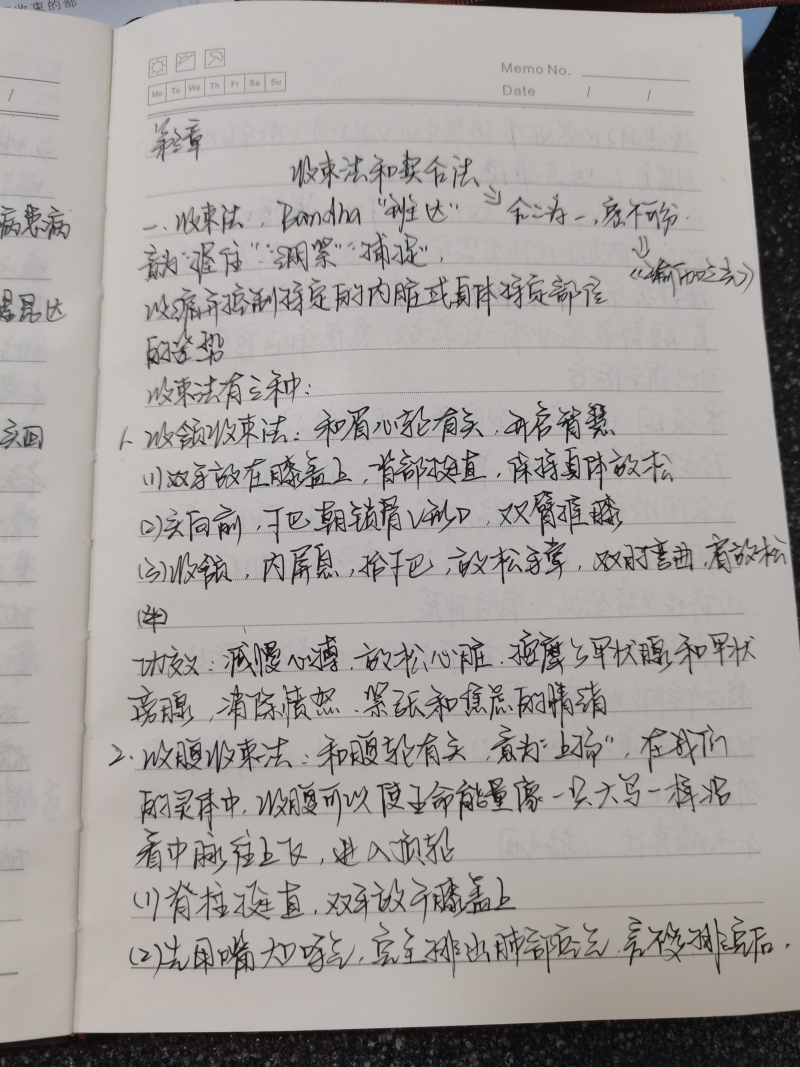 收束的部
Memo No.
Mo Tu We Th Fr Sa Su
Date / /
/
第三章
收束法和契合法
一、收束法，Bandha "班达" ⇒ 合二为一，密不可分.
意为"握住""绷紧""捕捉",
《瑜伽之光》
收缩并控制特定的内脏或身体特定部位
的姿势
收束法有三种：
1、收颌收束法：和眉心轮有关，开启智慧
(1)双手放在膝盖上，背部挺直，保持身体放松
(2)头向前，下巴朝锁骨V形口，双臂推膝
(3)收颌，内屏息，抬下巴，放松手掌，双肘弯曲，肩放松
功效：减慢心搏，放松心脏，按摩了甲状腺和甲状
旁腺，消除愤怒、紧张和焦虑的情绪
2、收腹收束法：和腹轮有关，意为"上抑"，在我们
的灵体中，收腹可以使生命能量像一只大鸟一样沿
着中脉往上飞，进入顶轮
(1)脊柱挺直，双手放于膝盖上
(2)先用嘴大口呼气，完全排出肺部废气，完全排完后，
病患病
昆达